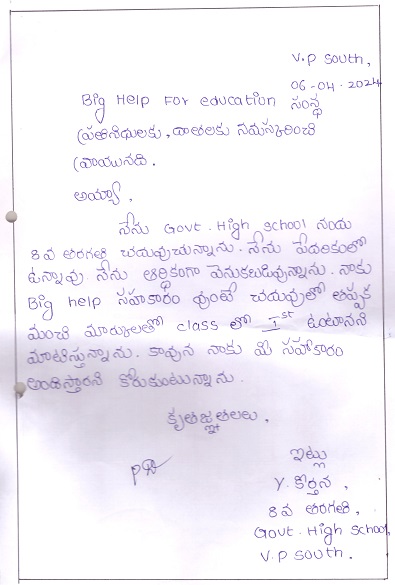 V.P South,
06-04-2024
Big Help For education సంస్థ
ప్రతినిధులకు, దాతలకు నమస్కరించి
వ్రాయునది.
అయ్యా,
నేను Govt. High School నందు
8 వ తరగతి చదువుచున్నాను. నేను పేదరికంలో
ఉన్నావు నేను ఆర్థికంగా వెనుకబడివున్నాను. నాకు
Big help సహకారం వుంటే చదువులో తప్పక
మంచి మార్కులతో class లో Ist ఉంటానని
మాటిస్తున్నాను. కావున నాకు మీ సహకారం
అందిస్తారని కోరుకుంటున్నాను.
కృతజ్ఞతలు,
ఇట్లు
Y. కీర్తన,
8 వ తరగతి,
Govt. High School,
V.P South.